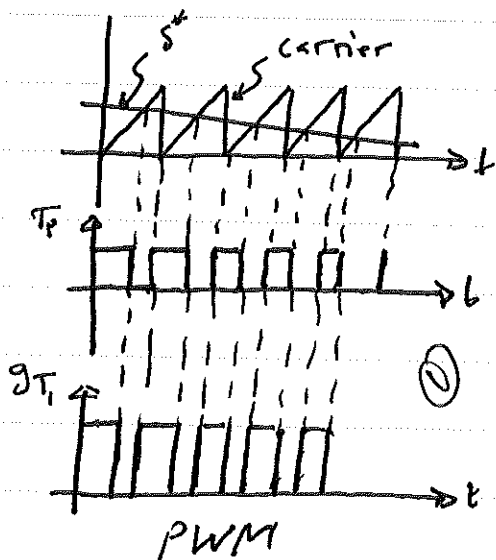 δ* carrier
t
Tp
t
gT1
t
PWM